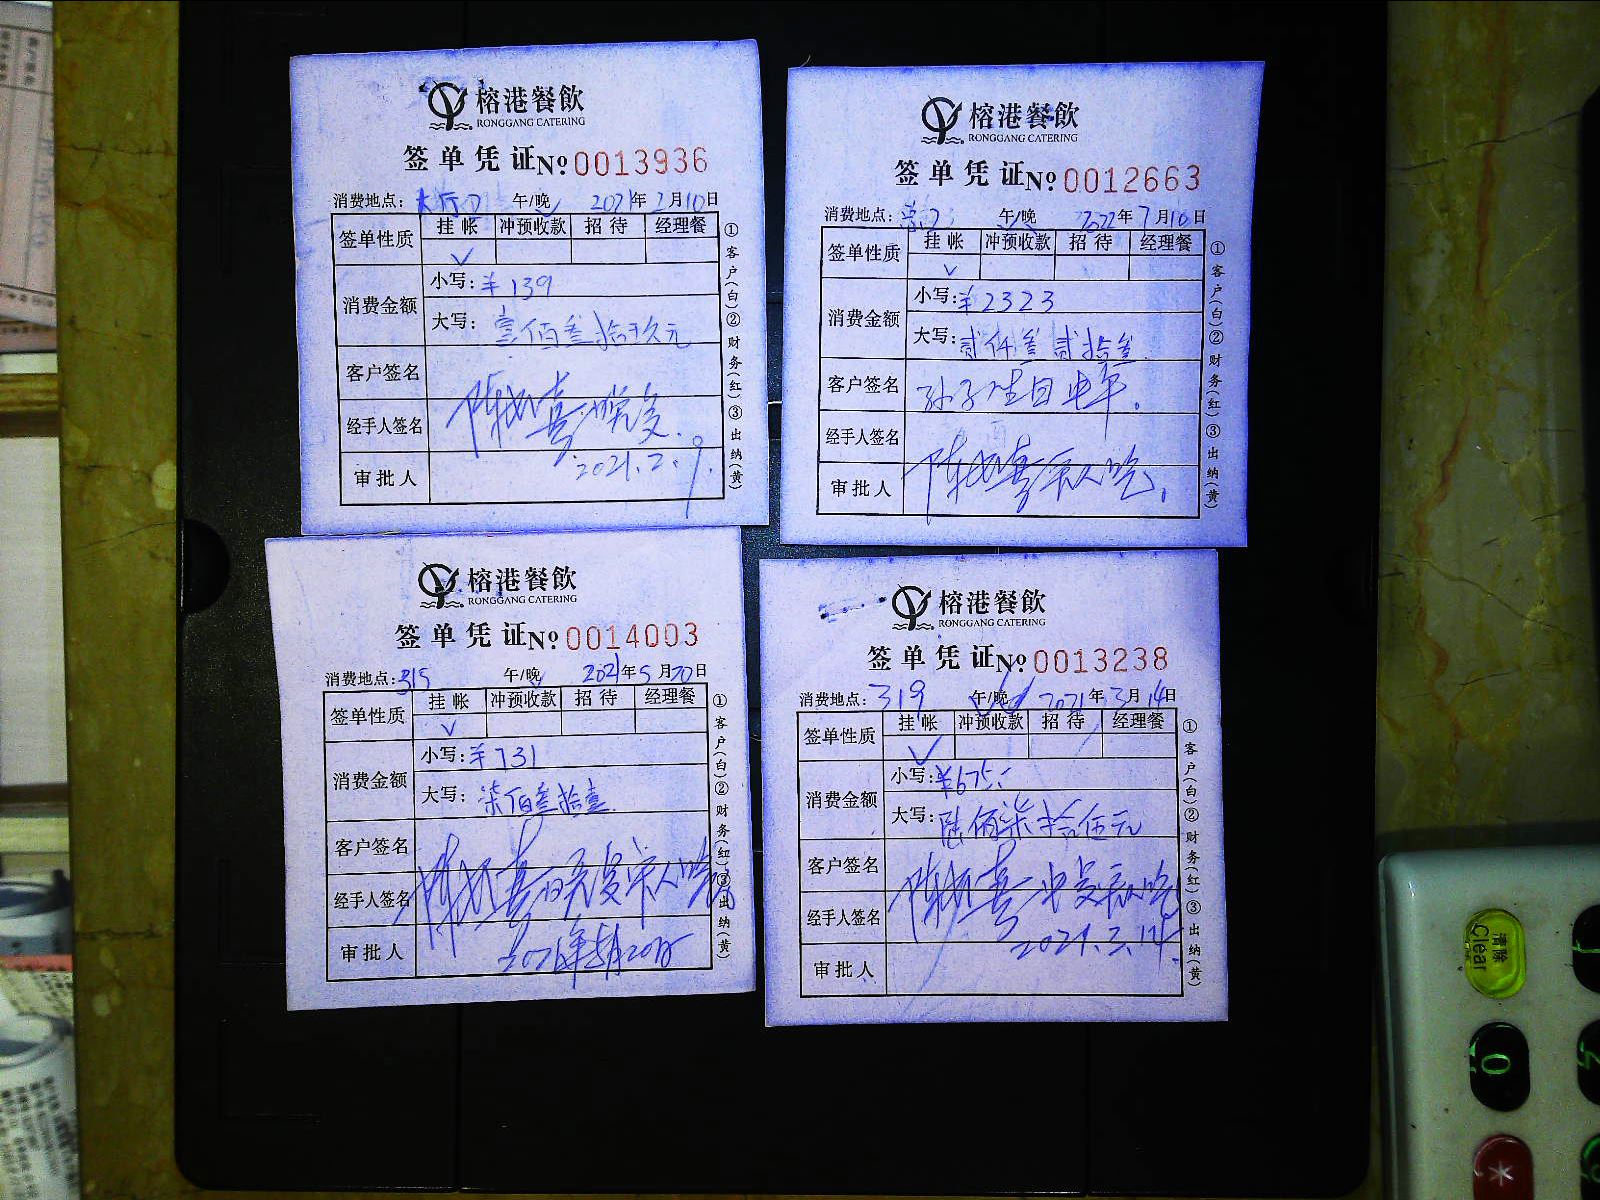 榕港餐飲
RONGGANG CATERING
签单凭证 No 0013936
消费地点: 大厅 午/晚 2021年2月10日
签单性质 挂帐 冲预收款 招待 经理餐
√
消费金额 小写: ¥139
大写: 壹佰叁拾玖元
客户签名
经手人签名
2021.2.9.
审批人
①客户(白)②财务(红)③出纳(黄)
榕港餐飲
RONGGANG CATERING
签单凭证 No 0012663
消费地点: 午/晚 2022年7月10日
签单性质 挂帐 冲预收款 招待 经理餐
√
消费金额 小写: ¥2323
大写: 贰仟叁 贰拾叁
客户签名 孙子生日
经手人签名
审批人
①客户(白)②财务(红)③出纳(黄)
榕港餐飲
RONGGANG CATERING
签单凭证 No 0014003
消费地点: 315 午/晚 2021年5月20日
签单性质 挂帐 冲预收款 招待 经理餐
√
消费金额 小写: ¥731
大写: 柒佰叁拾壹
客户签名
经手人签名
审批人 2021年5月20日
①客户(白)②财务(红)③出纳(黄)
榕港餐飲
RONGGANG CATERING
签单凭证 No 0013238
消费地点: 319 午/晚 2021年3月14日
签单性质 挂帐 冲预收款 招待 经理餐
√
消费金额 小写: ¥675
大写: 陆佰柒拾伍元
客户签名
经手人签名
2021.3.14.
审批人
①客户(白)②财务(红)③出纳(黄)
清除
Clear
0
*